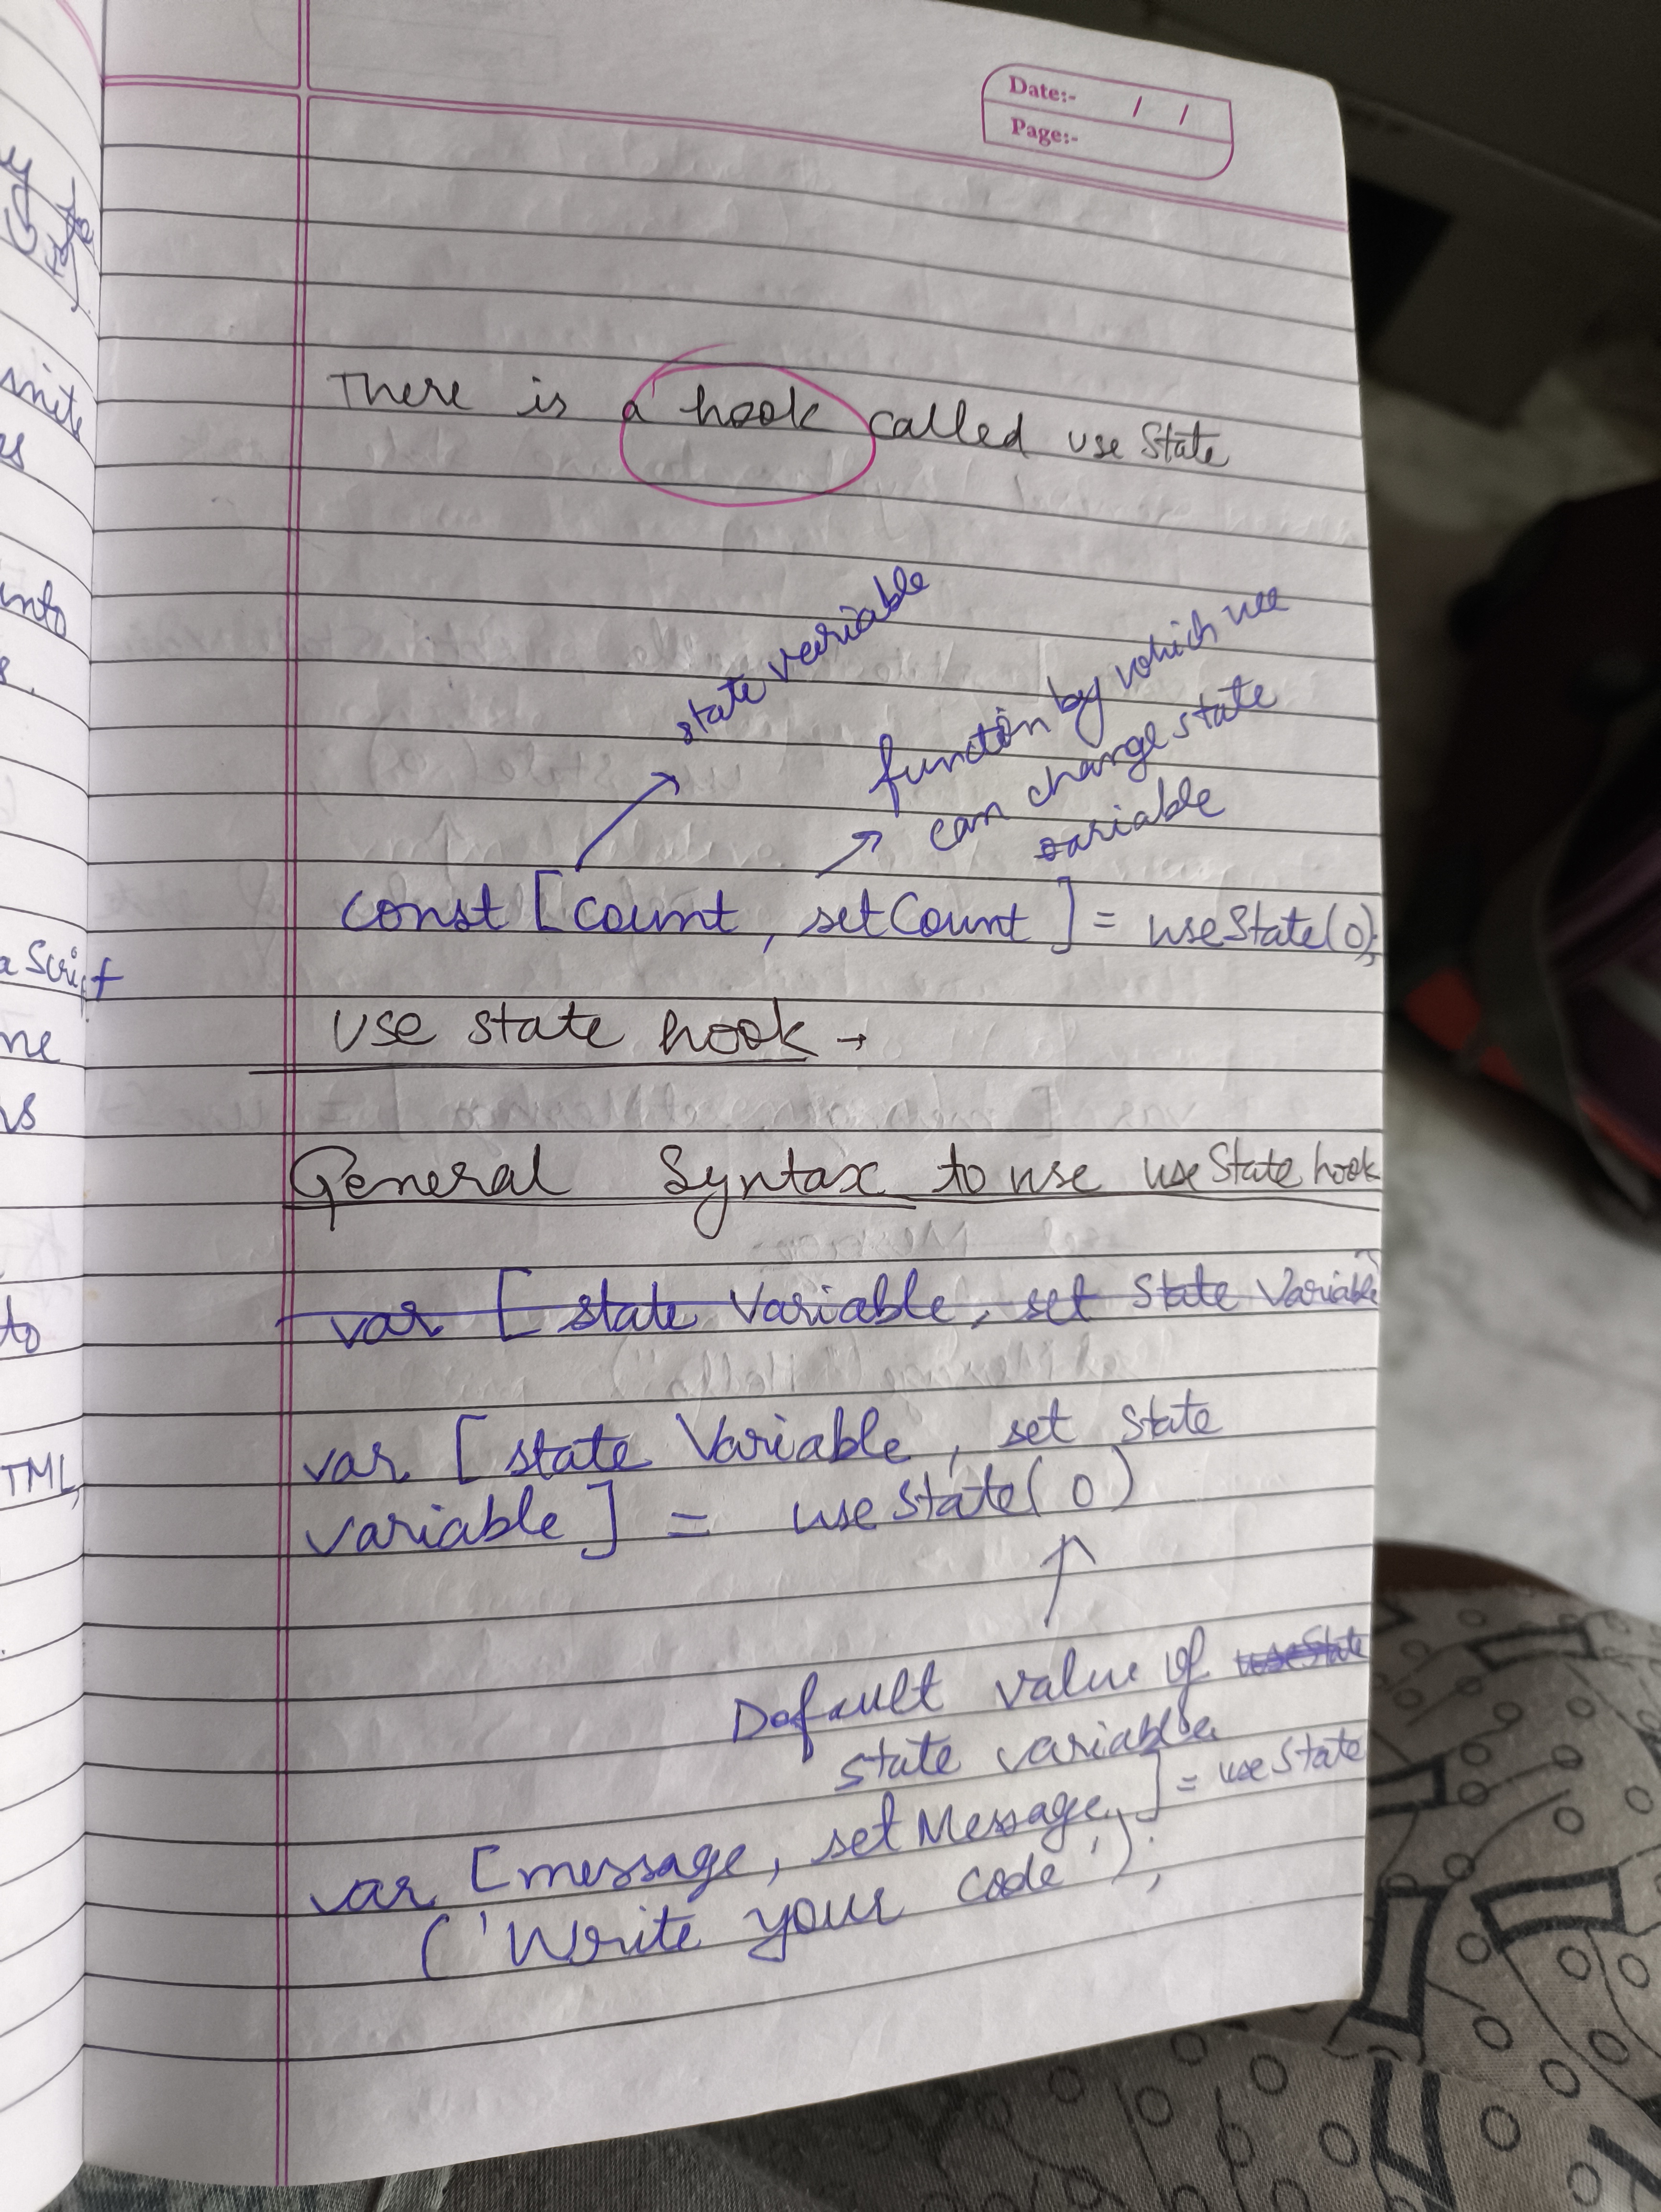 Date:- / /
Page:-
There is a hook called useState
state variable
function by which we
can change state
variable
const [count, setCount] = useState(0);
use state hook →
General Syntax to use useState hook
var [state Variable, set State Variable]
var [state Variable, set State
variable] = useState(0)
Default value of useState
state variable
var [message, setMessage] = useState
('Write your code');
into
a Script
ne
to
TML,